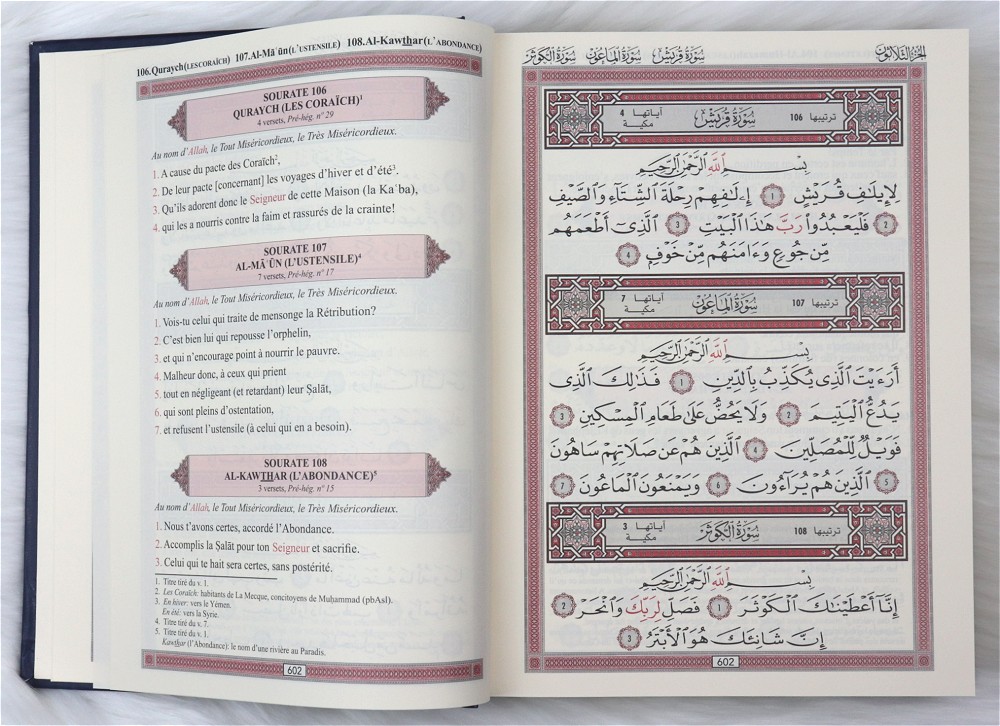 106.Quraych(LESCORAÏCH) 107.Al-Mâ`ûn(L'USTENSILE) 108.Al-Kawthar(L'ABONDANCE)
SOURATE 106
QURAYCH (LES CORAÏCH)¹
4 versets, Pré-hég. n° 29
Au nom d'Allah, le Tout Miséricordieux, le Très Miséricordieux.
1. A cause du pacte des Coraïch²,
2. De leur pacte [concernant] les voyages d'hiver et d'été³.
3. Qu'ils adorent donc le Seigneur de cette Maison (la Ka`ba),
4. qui les a nourris contre la faim et rassurés de la crainte!
SOURATE 107
AL-MĀ`ŪN (L'USTENSILE)⁴
7 versets, Pré-hég. n° 17
Au nom d'Allah, le Tout Miséricordieux, le Très Miséricordieux.
1. Vois-tu celui qui traite de mensonge la Rétribution?
2. C'est bien lui qui repousse l'orphelin,
3. et qui n'encourage point à nourrir le pauvre.
4. Malheur donc, à ceux qui prient
5. tout en négligeant (et retardant) leur Ṣalāt,
6. qui sont pleins d'ostentation,
7. et refusent l'ustensile (à celui qui en a besoin).
SOURATE 108
AL-KAWTHAR (L'ABONDANCE)⁵
3 versets, Pré-hég. n° 15
Au nom d'Allah, le Tout Miséricordieux, le Très Miséricordieux.
1. Nous t'avons certes, accordé l'Abondance.
2. Accomplis la Ṣalāt pour ton Seigneur et sacrifie.
3. Celui qui te hait sera certes, sans postérité.
1. Titre tiré du v. 1.
2. Les Coraïch: habitants de La Mecque, concitoyens de Muḥammad (pbAsl).
3. En hiver: vers le Yémen.
En été: vers la Syrie.
4. Titre tiré du v. 7.
5. Titre tiré du v. 1.
Kawthar (l'Abondance): le nom d'une rivière au Paradis.
602
الجزء الثلاثون سورة قريش سورة الماعون سورة الكوثر
ترتيبها 106 سورة قريش آياتها 4 مكية
بِسْمِ اللَّهِ الرَّحْمَٰنِ الرَّحِيمِ
لِإِيلَافِ قُرَيْشٍ ١ إِۦلَافِهِمْ رِحْلَةَ الشِّتَاءِ وَالصَّيْفِ
٢ فَلْيَعْبُدُوا رَبَّ هَٰذَا الْبَيْتِ ٣ الَّذِي أَطْعَمَهُم
مِّن جُوعٍ وَءَامَنَهُم مِّنْ خَوْفٍ ٤
ترتيبها 107 سورة الماعون آياتها 7 مكية
بِسْمِ اللَّهِ الرَّحْمَٰنِ الرَّحِيمِ
أَرَءَيْتَ الَّذِي يُكَذِّبُ بِالدِّينِ ١ فَذَٰلِكَ الَّذِي
يَدُعُّ الْيَتِيمَ ٢ وَلَا يَحُضُّ عَلَىٰ طَعَامِ الْمِسْكِينِ ٣
فَوَيْلٌ لِّلْمُصَلِّينَ ٤ الَّذِينَ هُمْ عَن صَلَاتِهِمْ سَاهُونَ
٥ الَّذِينَ هُمْ يُرَاءُونَ ٦ وَيَمْنَعُونَ الْمَاعُونَ ٧
ترتيبها 108 سورة الكوثر آياتها 3 مكية
بِسْمِ اللَّهِ الرَّحْمَٰنِ الرَّحِيمِ
إِنَّا أَعْطَيْنَاكَ الْكَوْثَرَ ١ فَصَلِّ لِرَبِّكَ وَانْحَرْ ٢
إِنَّ شَانِئَكَ هُوَ الْأَبْتَرُ ٣
602